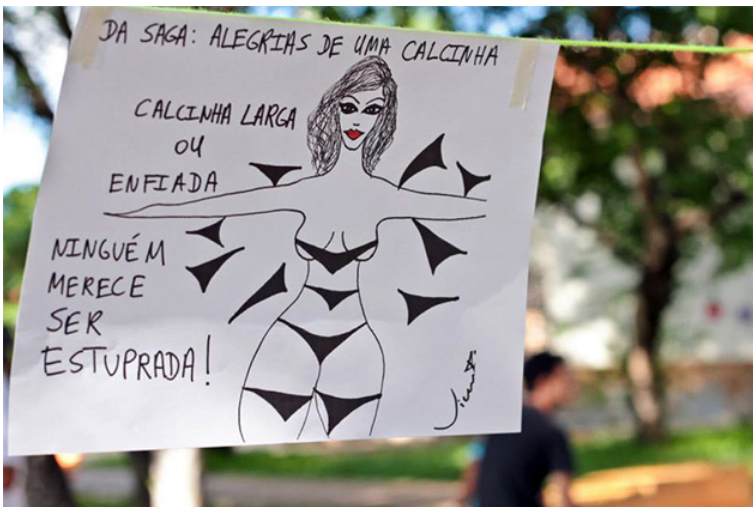 DA SAGA: ALEGRIAS DE UMA CALCINHA
CALCINHA LARGA
OU
ENFIADA
NINGUÉM
MERECE
SER
ESTUPRADA!